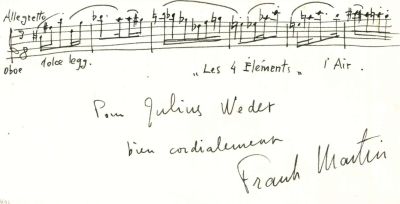 Allegretto
Oboe dolce legg. „Les 4 Éléments„ l'Air.
Pour Julius Weder
bien cordialement
Frank Martin